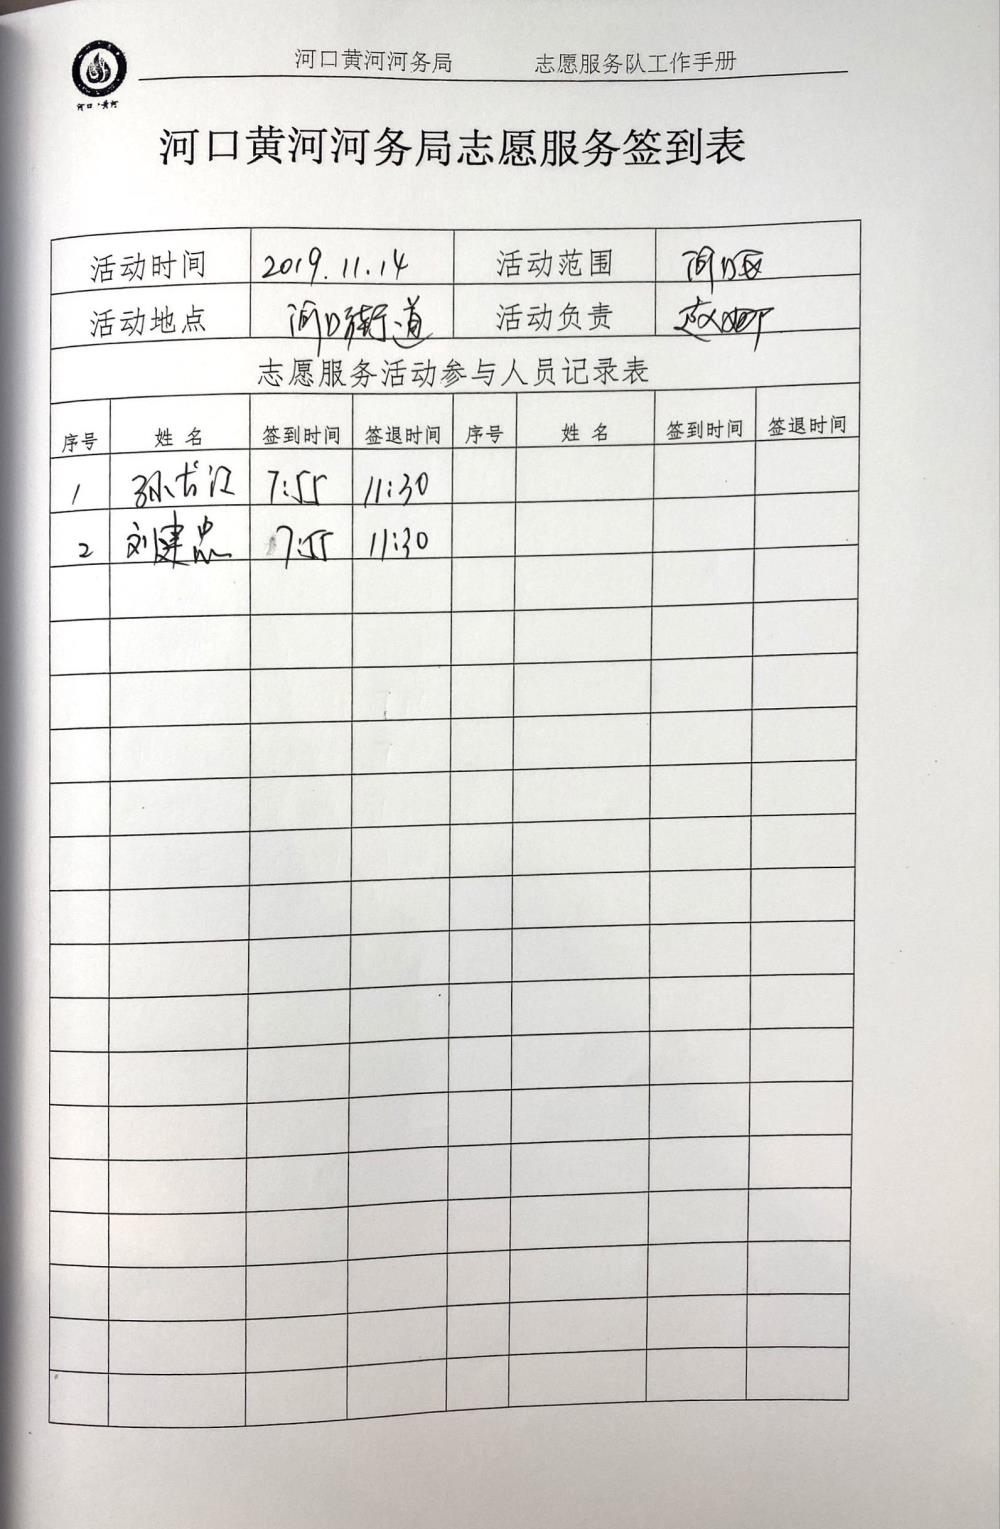 河口黄河河务局 志愿服务队工作手册
河口·黄河
河口黄河河务局志愿服务签到表
活动时间 2019.11.14 活动范围 河口区
活动地点 河口街道 活动负责 赵
志愿服务活动参与人员记录表
序号 姓名 签到时间 签退时间 序号 姓名 签到时间 签退时间
1 孙长江 7:55 11:30
2 刘建忠 7:55 11:30